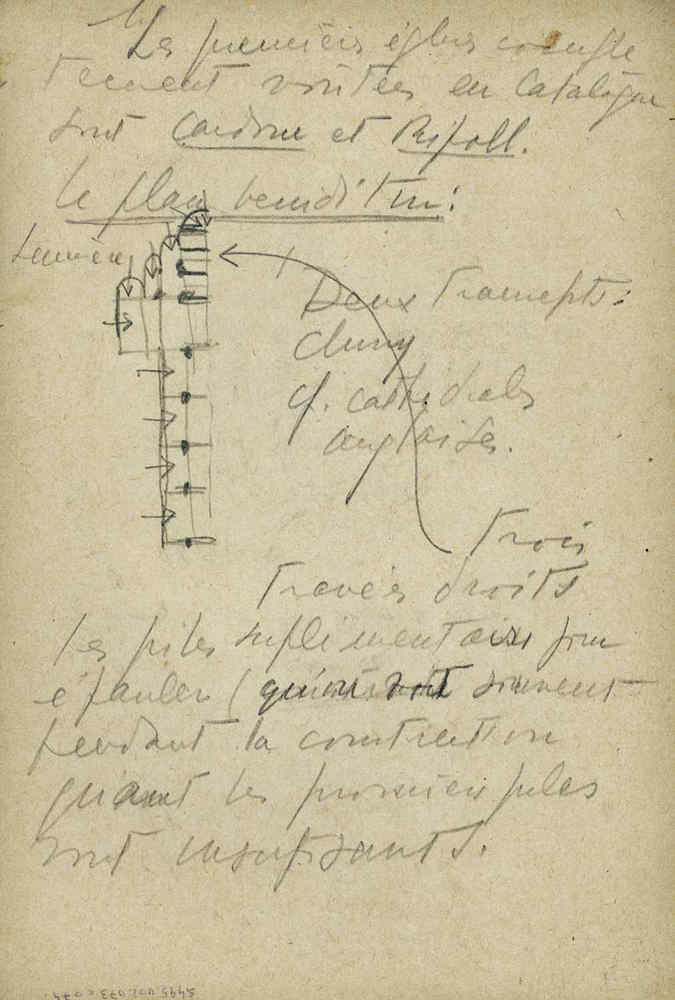 Les premières églises complè
tement voûtées en Catalogne
sont Cardone et Ripoll.
Le plan bénédictin :
Lumière
Deux transepts :
Cluny
cf. cathédrales
anglaises.
Trois
travées droites
Les piles supplémentaires pour
épauler ( souvent
pendant la construction
quant les premiers piles
sont insuffisants.